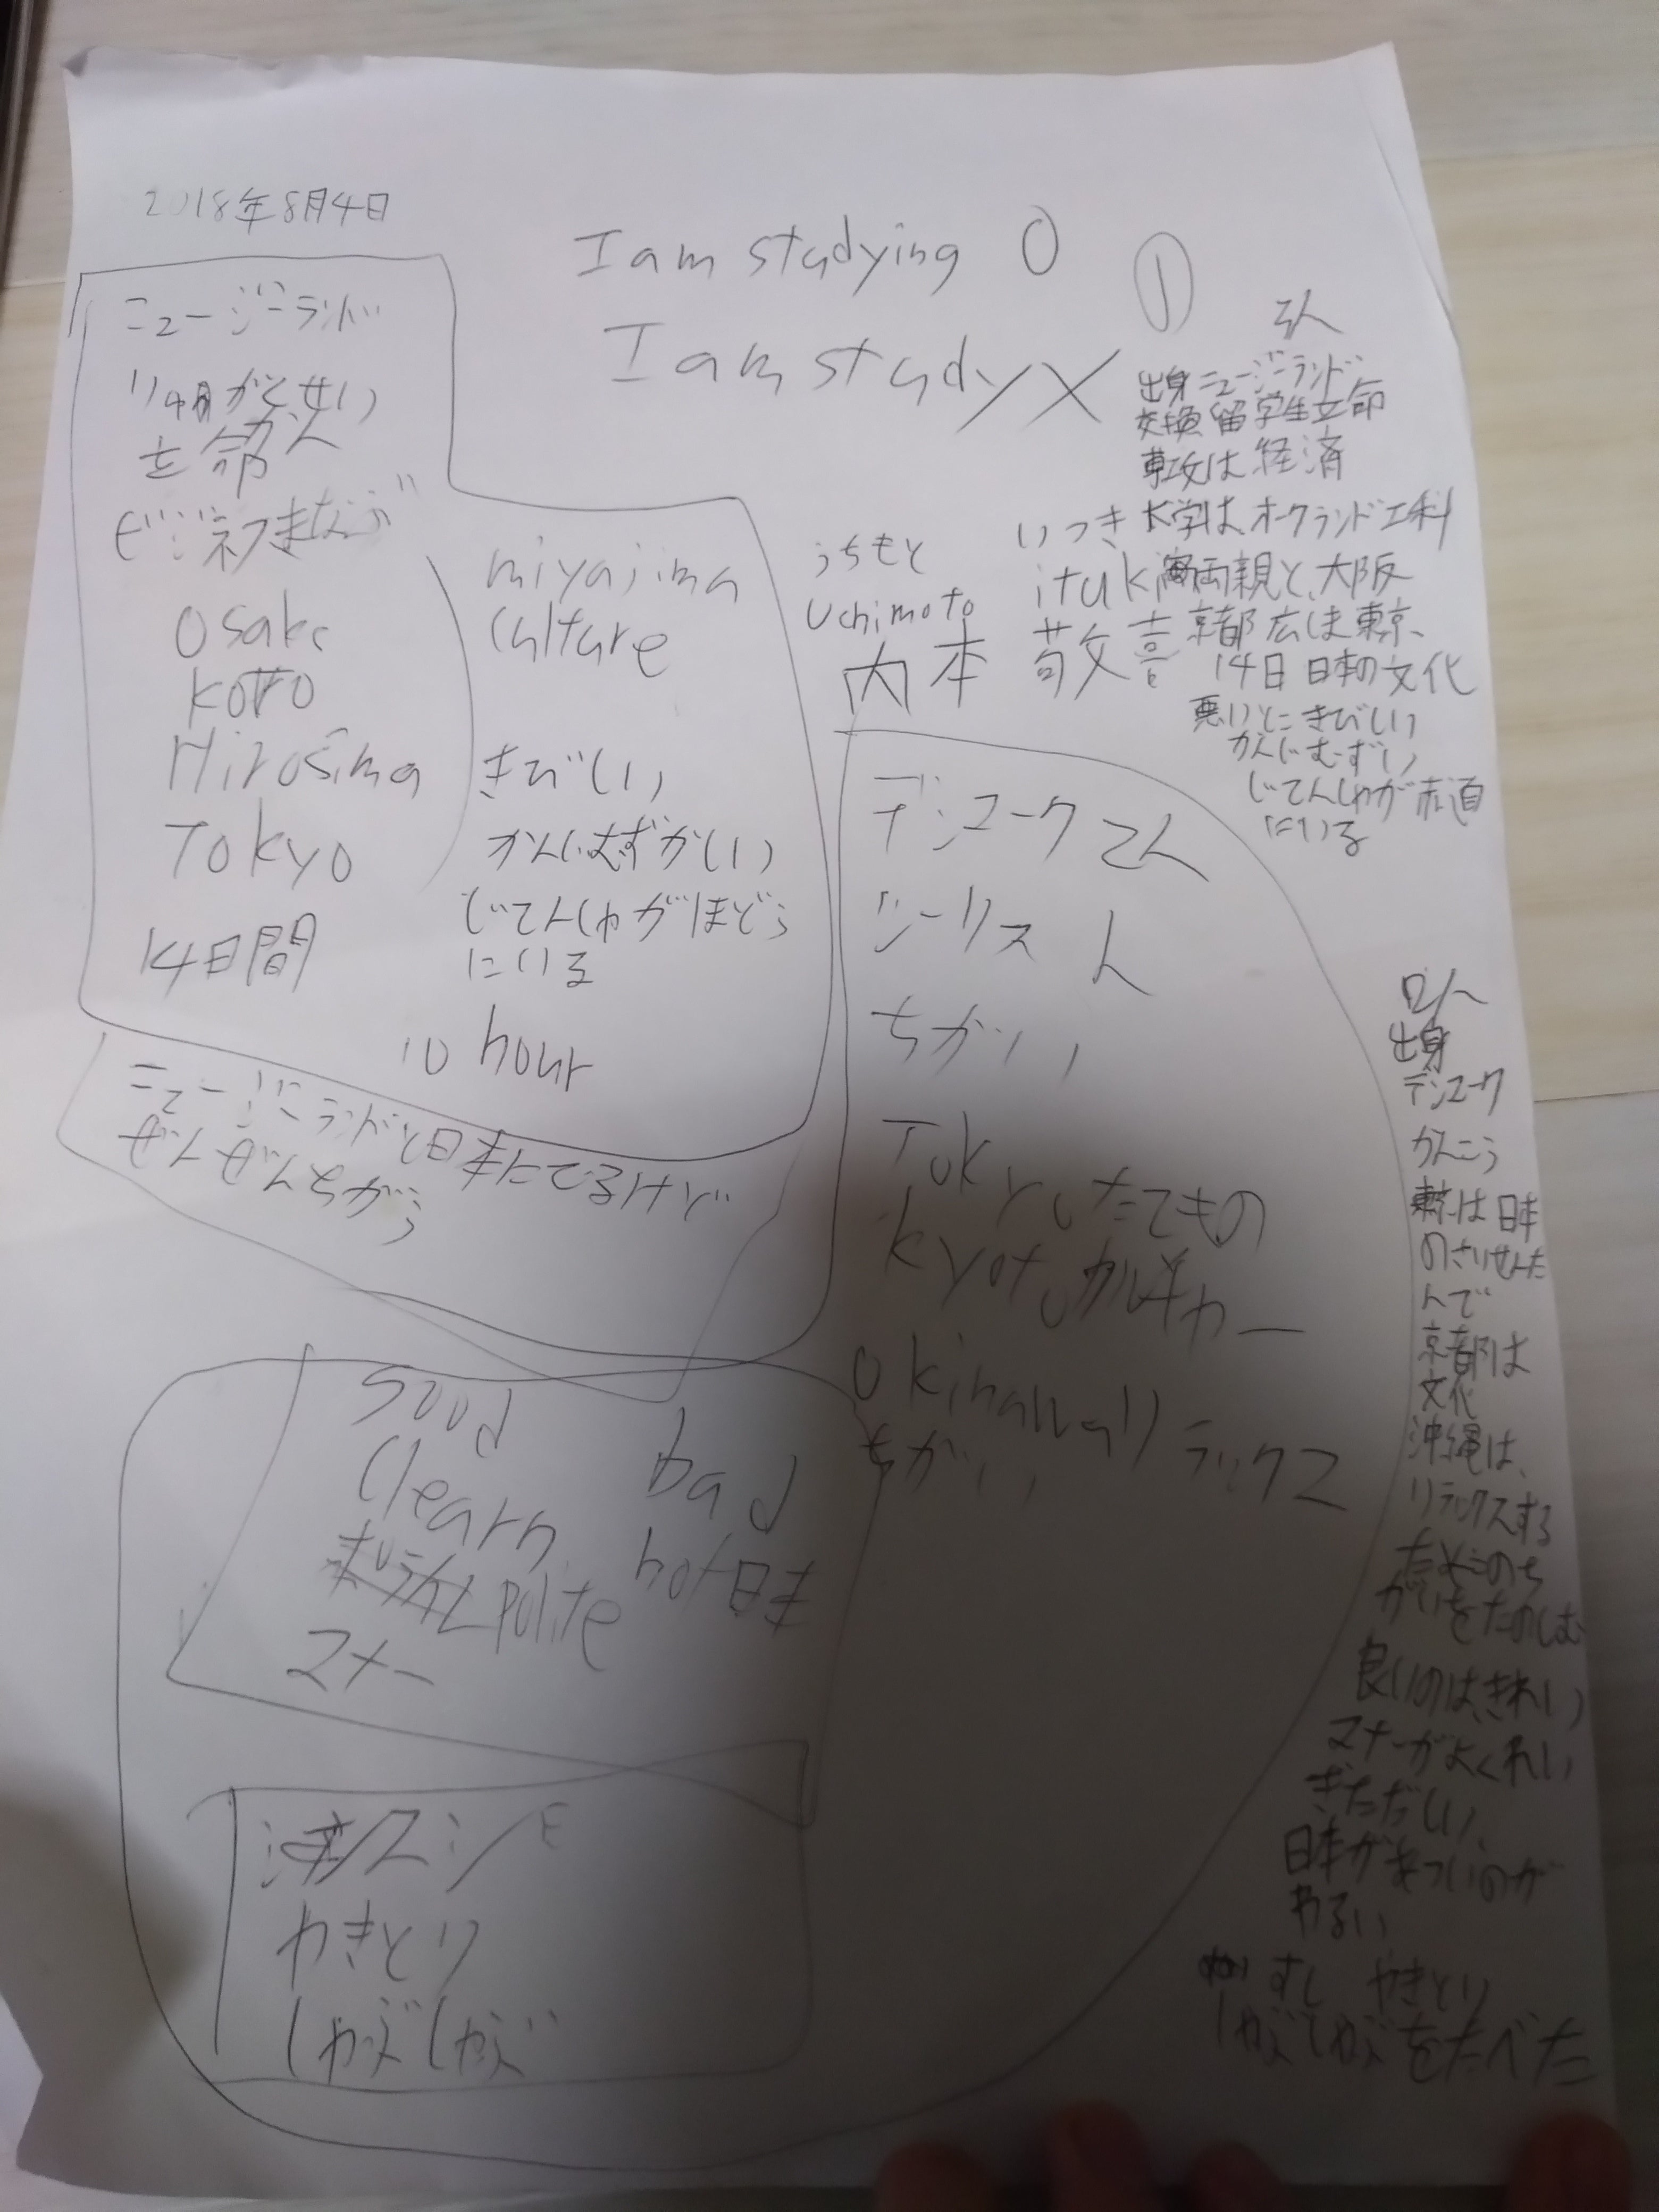 2018年8月4日
I am studying O
I am study X
①
ニュージーランド
ビジネスまなぶ
Osaka
Hirosima
Tokyo
14日間
miyajima
culture
きびしい
かんじむずかしい
じてんしゃがほどう
にいる
10 hour
ニュージーランドと日本にてるけど
ぜんぜんちがう
うちもと
いつき
Uchimoto
ituki
内本 敬喜
出身ニュージーランド
交換留学生立命
専攻は経済
大学は、オークランド工科
両親と、大阪
京都広しま東京、
14日 日本の文化
悪いとこきびしい
かんじむずい
じてんしゃが赤道
にいる
デンマーク
ちがい
Tokyo たてもの
kyoto カルチャー
okinawa リラックス
ちがい
出身
デンマーク
かんこう
東京は日本
のさいせんた
んで
京都は
文化
沖縄は、
リラックスする
がいをたのしむ
良いのは、きれい
マナーがよくれい
ぎただしい、
日本があついのが
わるい
すし やきとり
しゃぶしゃぶをたべた
good
bad
clearn
hot日本
polite
マナー
やきとり
しゃぶしゃぶ